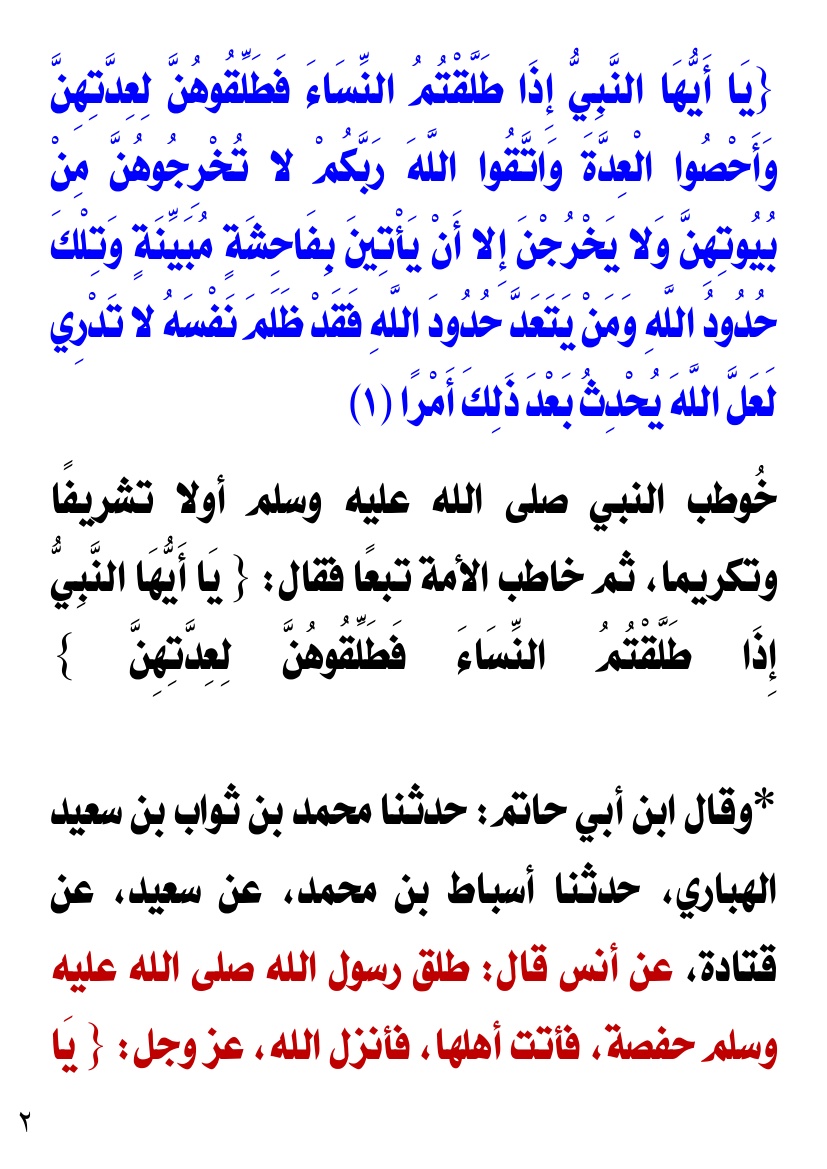 {يَا أَيُّهَا النَّبِيُّ إِذَا طَلَّقْتُمُ النِّسَاءَ فَطَلِّقُوهُنَّ لِعِدَّتِهِنَّ
وَأَحْصُوا الْعِدَّةَ وَاتَّقُوا اللَّهَ رَبَّكُمْ لا تُخْرِجُوهُنَّ مِنْ
بُيُوتِهِنَّ وَلا يَخْرُجْنَ إِلا أَنْ يَأْتِينَ بِفَاحِشَةٍ مُبَيِّنَةٍ وَتِلْكَ
حُدُودُ اللَّهِ وَمَنْ يَتَعَدَّ حُدُودَ اللَّهِ فَقَدْ ظَلَمَ نَفْسَهُ لا تَدْرِي
لَعَلَّ اللَّهَ يُحْدِثُ بَعْدَ ذَلِكَ أَمْرًا (١)
خُوطب النبي صلى الله عليه وسلم أولا تشريفًا
وتكريما، ثم خاطب الأمة تبعًا فقال: { يَا أَيُّهَا النَّبِيُّ
إِذَا طَلَّقْتُمُ النِّسَاءَ فَطَلِّقُوهُنَّ لِعِدَّتِهِنَّ }
*وقال ابن أبي حاتم: حدثنا محمد بن ثواب بن سعيد
الهباري، حدثنا أسباط بن محمد، عن سعيد، عن
قتادة، عن أنس قال: طلق رسول الله صلى الله عليه
وسلم حفصة، فأتت أهلها، فأنزل الله، عز وجل: { يَا
٢